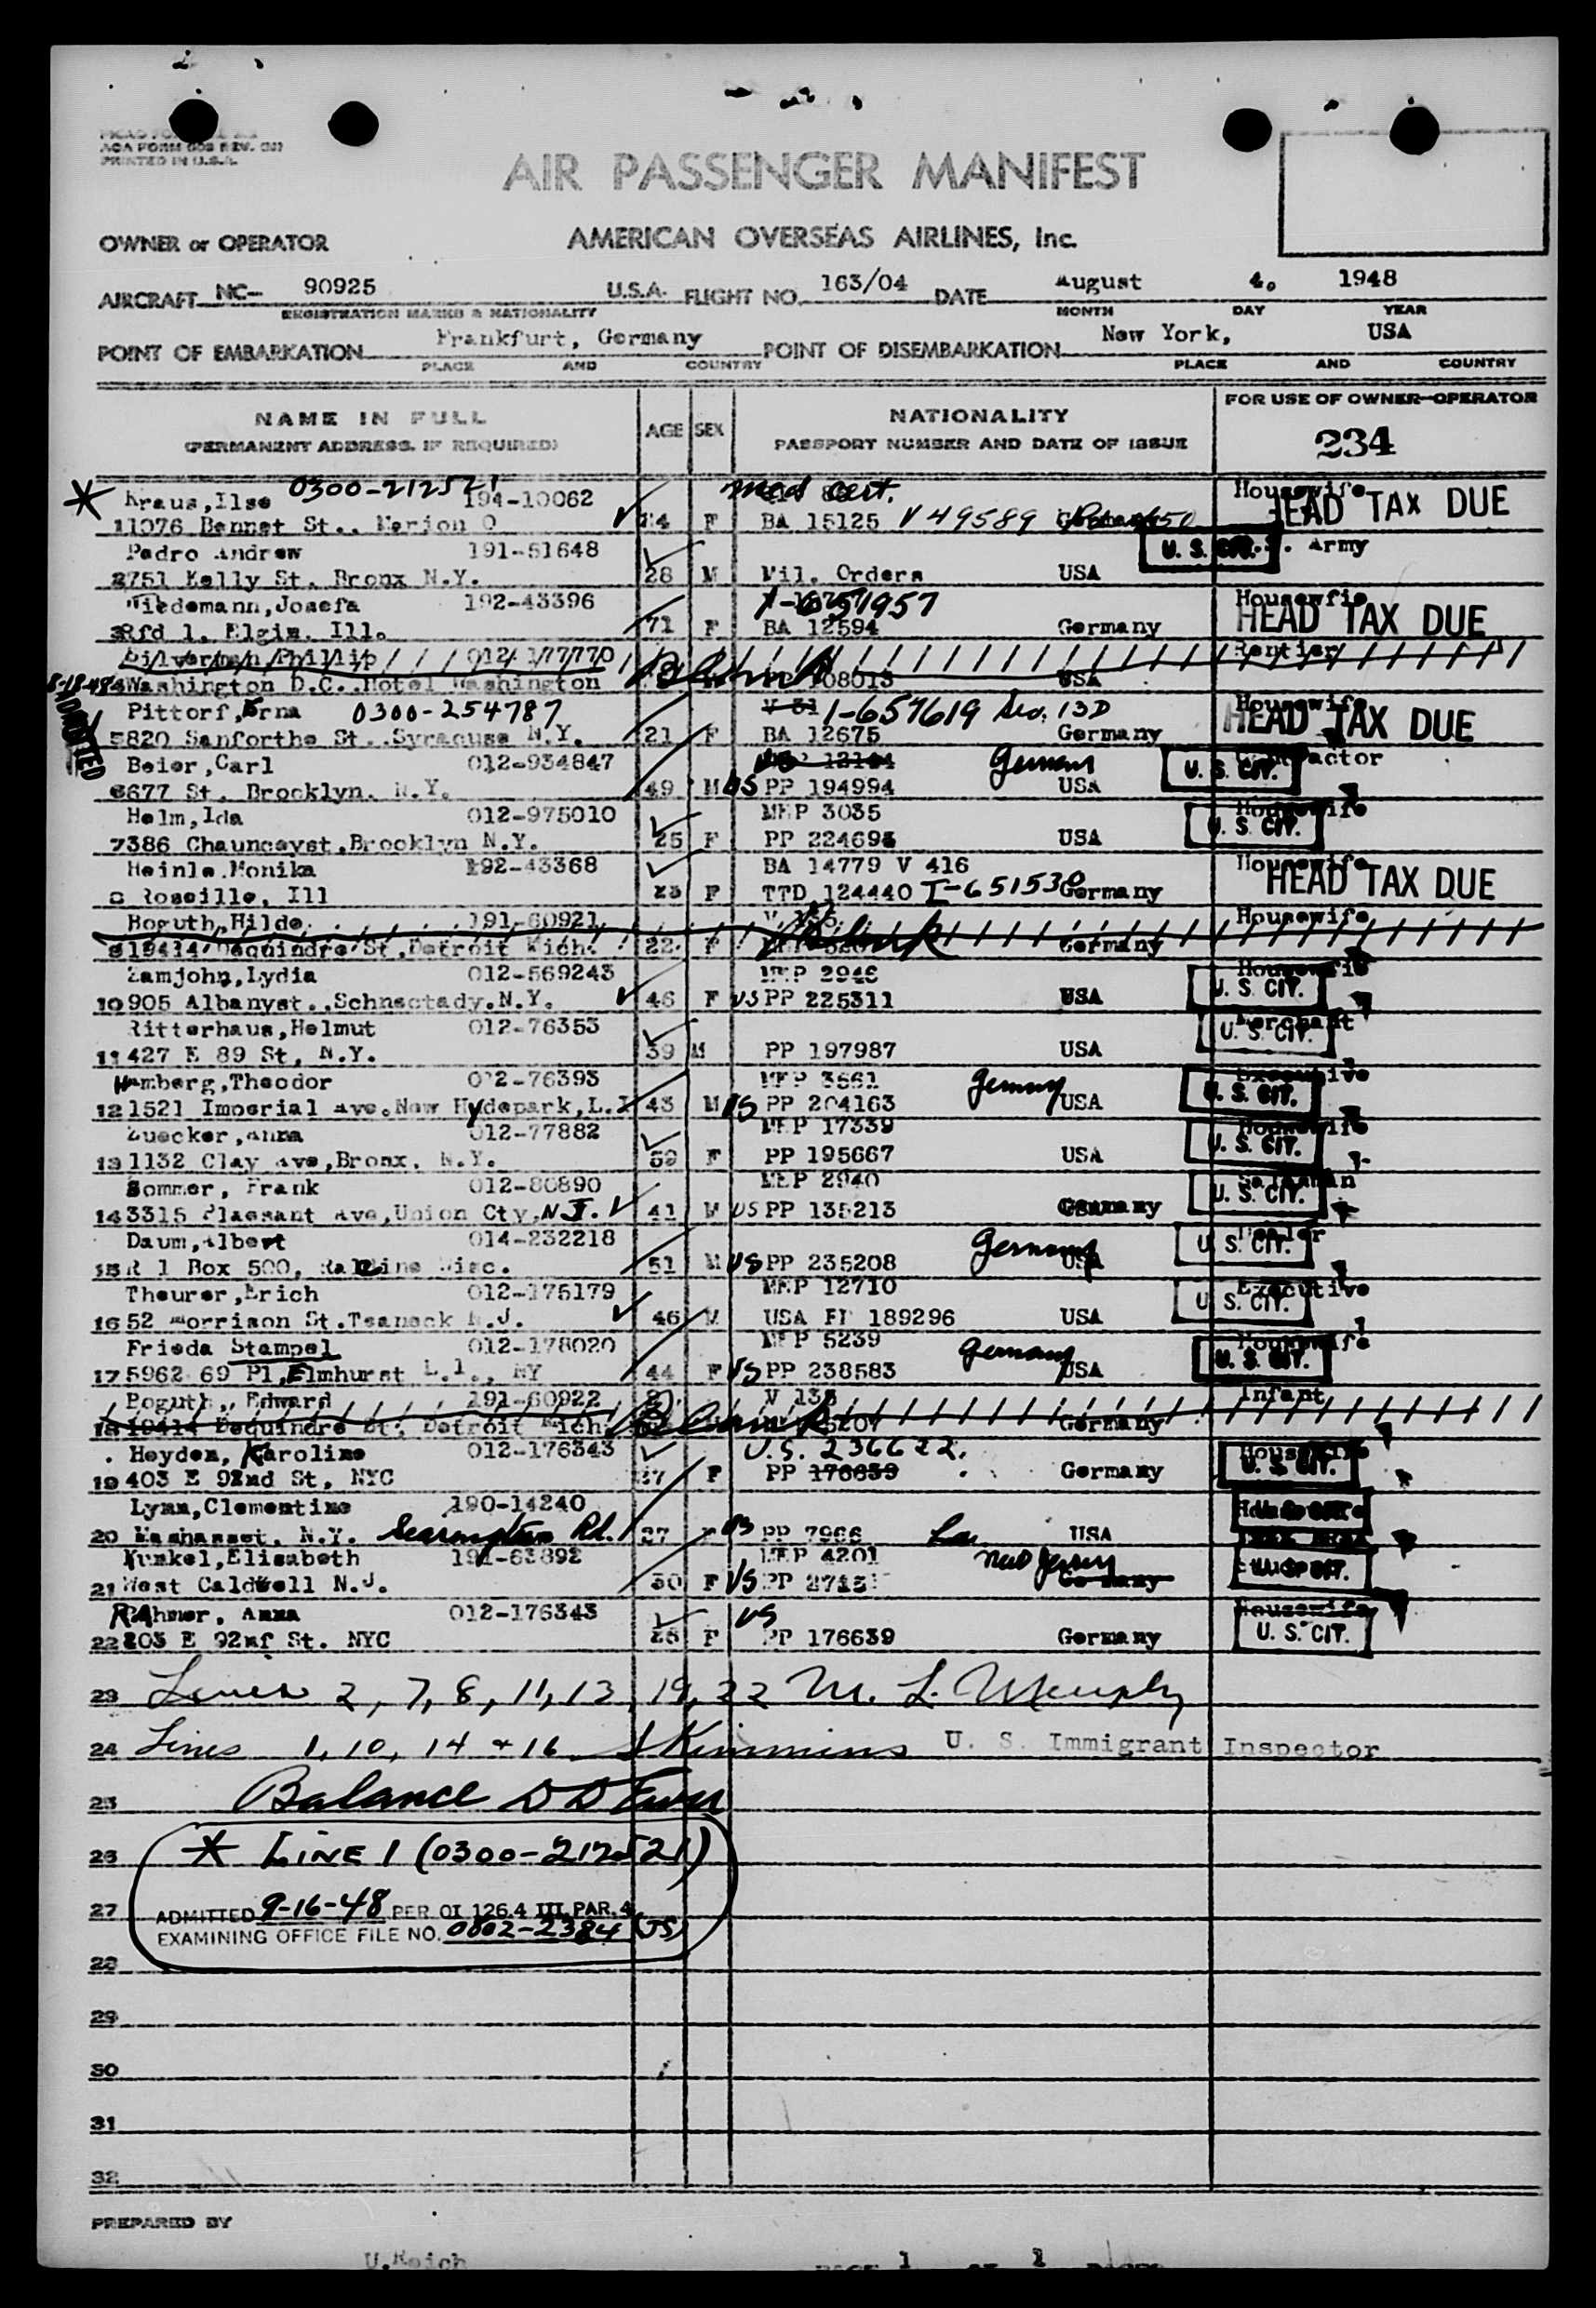 ACA FORM
PRINTED IN U.S.A.
AIR PASSENGER MANIFEST
OWNER or OPERATOR AMERICAN OVERSEAS AIRLINES, Inc.
AIRCRAFT NC- 90925 U.S.A. FLIGHT NO. 163/04 DATE August 4, 1948
REGISTRATION MARKS & NATIONALITY MONTH DAY YEAR
POINT OF EMBARKATION Frankfurt, Germany POINT OF DISEMBARKATION New York, USA
PLACE AND COUNTRY PLACE AND COUNTRY
NAME IN FULL AGE SEX NATIONALITY FOR USE OF OWNER-OPERATOR
(PERMANENT ADDRESS, IF REQUIRED) PASSPORT NUMBER AND DATE OF ISSUE 234
* Kraus,Ilse 0300-212521 194-10062 med cert. Housewife
11076 Bennet St., Marion O F BA 15125 V 49589 HEAD TAX DUE
Pedro Andrew 191-51648 U.S. Army
2 751 Kelly St. Bronx N.Y. 28 M Mil. Orders USA U. S. CIT.
Wiedemann,Josefa 192-43396 I-651957 Housewfie
3 Rfd 1, Elgin, Ill. 71 F BA 12594 Germany HEAD TAX DUE
Silverman,Phillip 012/177770 Blank Rentier
8-18-48 4 Washington D.C. Hotel Washington 08013 USA
ADMITTED
Pittorf,Erna 0300-254787 1-657619 Sec. 13D Housewife
5 820 Sanforthe St., Syracuse N.Y. 21 F BA 12675 Germany HEAD TAX DUE
Beier,Carl 012-934847 German
6 677 St. Brooklyn. N.Y. 49 M US PP 194994 USA U. S. CIT.
Helm,Ida 012-975010 MEP 3035 Housewife
7 386 Chauncayst,Brooklyn N.Y. 25 F PP 224693 USA U. S. CIT.
Heinle,Monika 192-43368 BA 14779 V 416 Housewife
8 Roseille, Ill F TTD 124440 I-651530 Germany HEAD TAX DUE
Boguth,Hilde 191-60921 Blank Housewife
9 19414 Dequindre St,Detroit Mich. 22 F Germany
Zamjohn,Lydia 012-569243 MEP 2946 Housewife
10 905 Albanyst.,Schnectady.N.Y. 46 F US PP 225311 USA U. S. CIT.
Ritterhaus,Helmut 012-76353 Merchant
11 427 E 89 St, N.Y. 39 M PP 197987 USA U. S. CIT.
Hamberg,Theodor 012-76393 MEP 3661 Germany Executive
12 1521 Imperial Ave.New Hydepark,L.I 43 M US PP 204163 USA U. S. CIT.
Zuecker,Anna 012-77882 MEP 17339 Housewife
13 1132 Clay Ave,Bronx, N.Y. 59 F PP 195667 USA U. S. CIT.
Sommer, Frank 012-80890 MEP 2940 Salesman
14 3315 Plaesant Ave,Union Cty,N.J. 41 M US PP 135213 Germany U. S. CIT.
Daum,Albert 014-232218 Germany
15 R 1 Box 500, Racine Wisc. 51 M US PP 235208 USA U. S. CIT.
Theurer,Erich 012-175179 MEP 12710 Executive
16 52 Morrison St.Teaneck N.J. 46 M USA PP 189296 USA U. S. CIT.
Frieda Stampel 012-178020 MEP 5239 Germany Housewife
17 5962 69 Pl,Elmhurst L.I., NY 44 F US PP 238583 USA U. S. CIT.
Boguth, Edward 191-60922 V 135 Infant
18 19414 Dequindre St, Detroit Mich. Blank Germany
Heyden, Karoline 012-176343 U.S. 236622. Housewife
19 403 E 92nd St, NYC 27 F PP 176639 Germany U. S. CIT.
Lynn,Clementine 190-14240
20 Manhasset, N.Y. Searingtown Rd. 27 US PP 7966 USA
Kunkel,Elisabeth 191-63892 MEP 4201 New Jersey
21 West Caldwell N.J. 30 F US PP Germany U. S. CIT.
Rahmer, Anna 012-176343 US Housewife
22 203 E 92nf St. NYC F PP 176639 Germany U. S. CIT.
23 Lines 2, 7, 8, 11, 13, 19, 22 M. L. Murphy
24 Lines 1, 10, 14 + 16 J Kimmins U. S. Immigrant Inspector
25 Balance D D Ewer
26 * LINE 1 (0300-212521)
27 ADMITTED 9-16-48 PER OI 126.4 III, PAR. 4,
EXAMINING OFFICE FILE NO. 0002-2384 (JS)
28
29
30
31
32
PREPARED BY
U.Reich PAGE 1 OF 1 PAGES